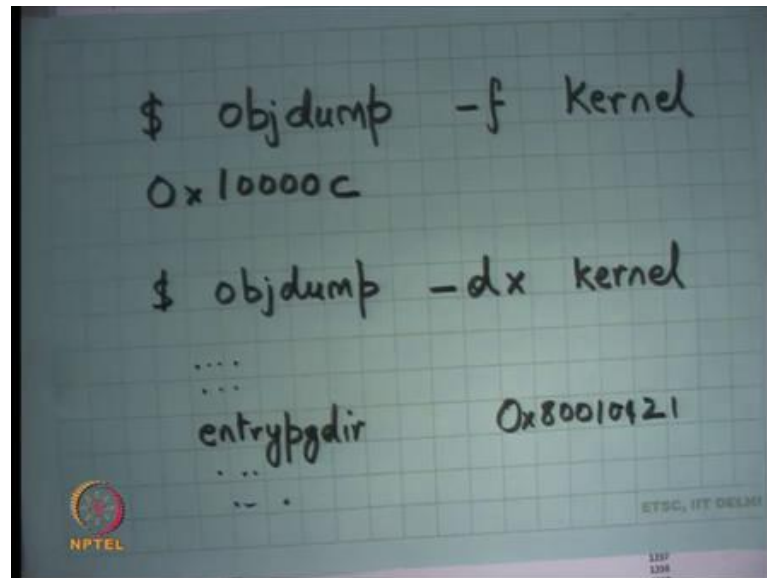 $ objdump -f Kernel
0x10000C
$ objdump -dx kernel
....
...
entrypgdir 0x80010421
. ..
.. .
NPTEL
ETSC, IIT DELHI
1257
1258